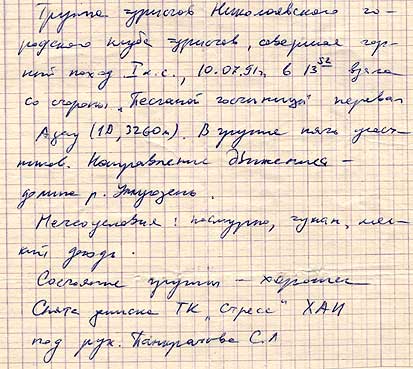 Группа туристов Николаевского го-
родского клуба туристов, совершая гор-
ный поход I к.с., 10.07.91г. в 13⁵² взяла
со стороны "Песчаной гостиницы" перевал
Адсу (1А, 3260м). В группе пять участ-
ников. Направление движения -
долина р. Эшкудзень.
Метеоусловия: пасмурно, туман, мел-
кий дождь.
Состояние группы - хорошее
Снята записка ТК "Стресс" ХАИ
под рук. Панкратова С.Л